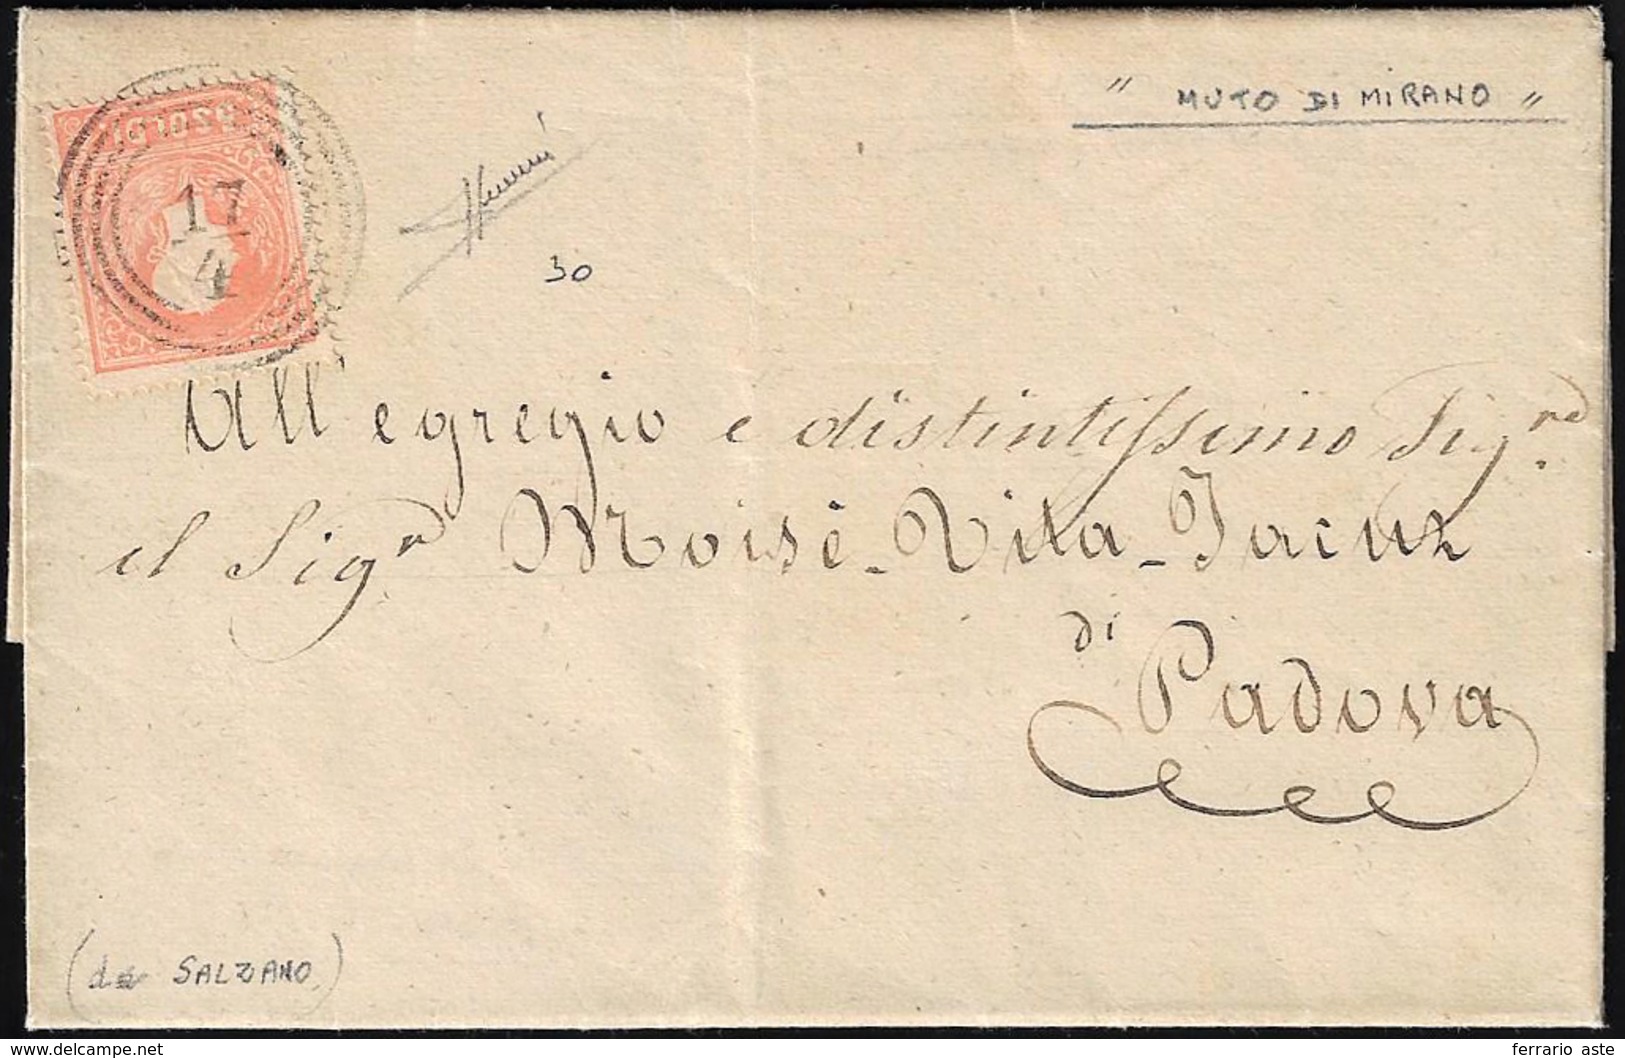 " MUTO DI MIRANO "
5 SOLDI
17
4
30
All'egregio e distintissimo Sigre
il Sigr Moisè Vita Jacur
di
Padova
(da SALZANO)
www.delcampe.net
ferrario aste